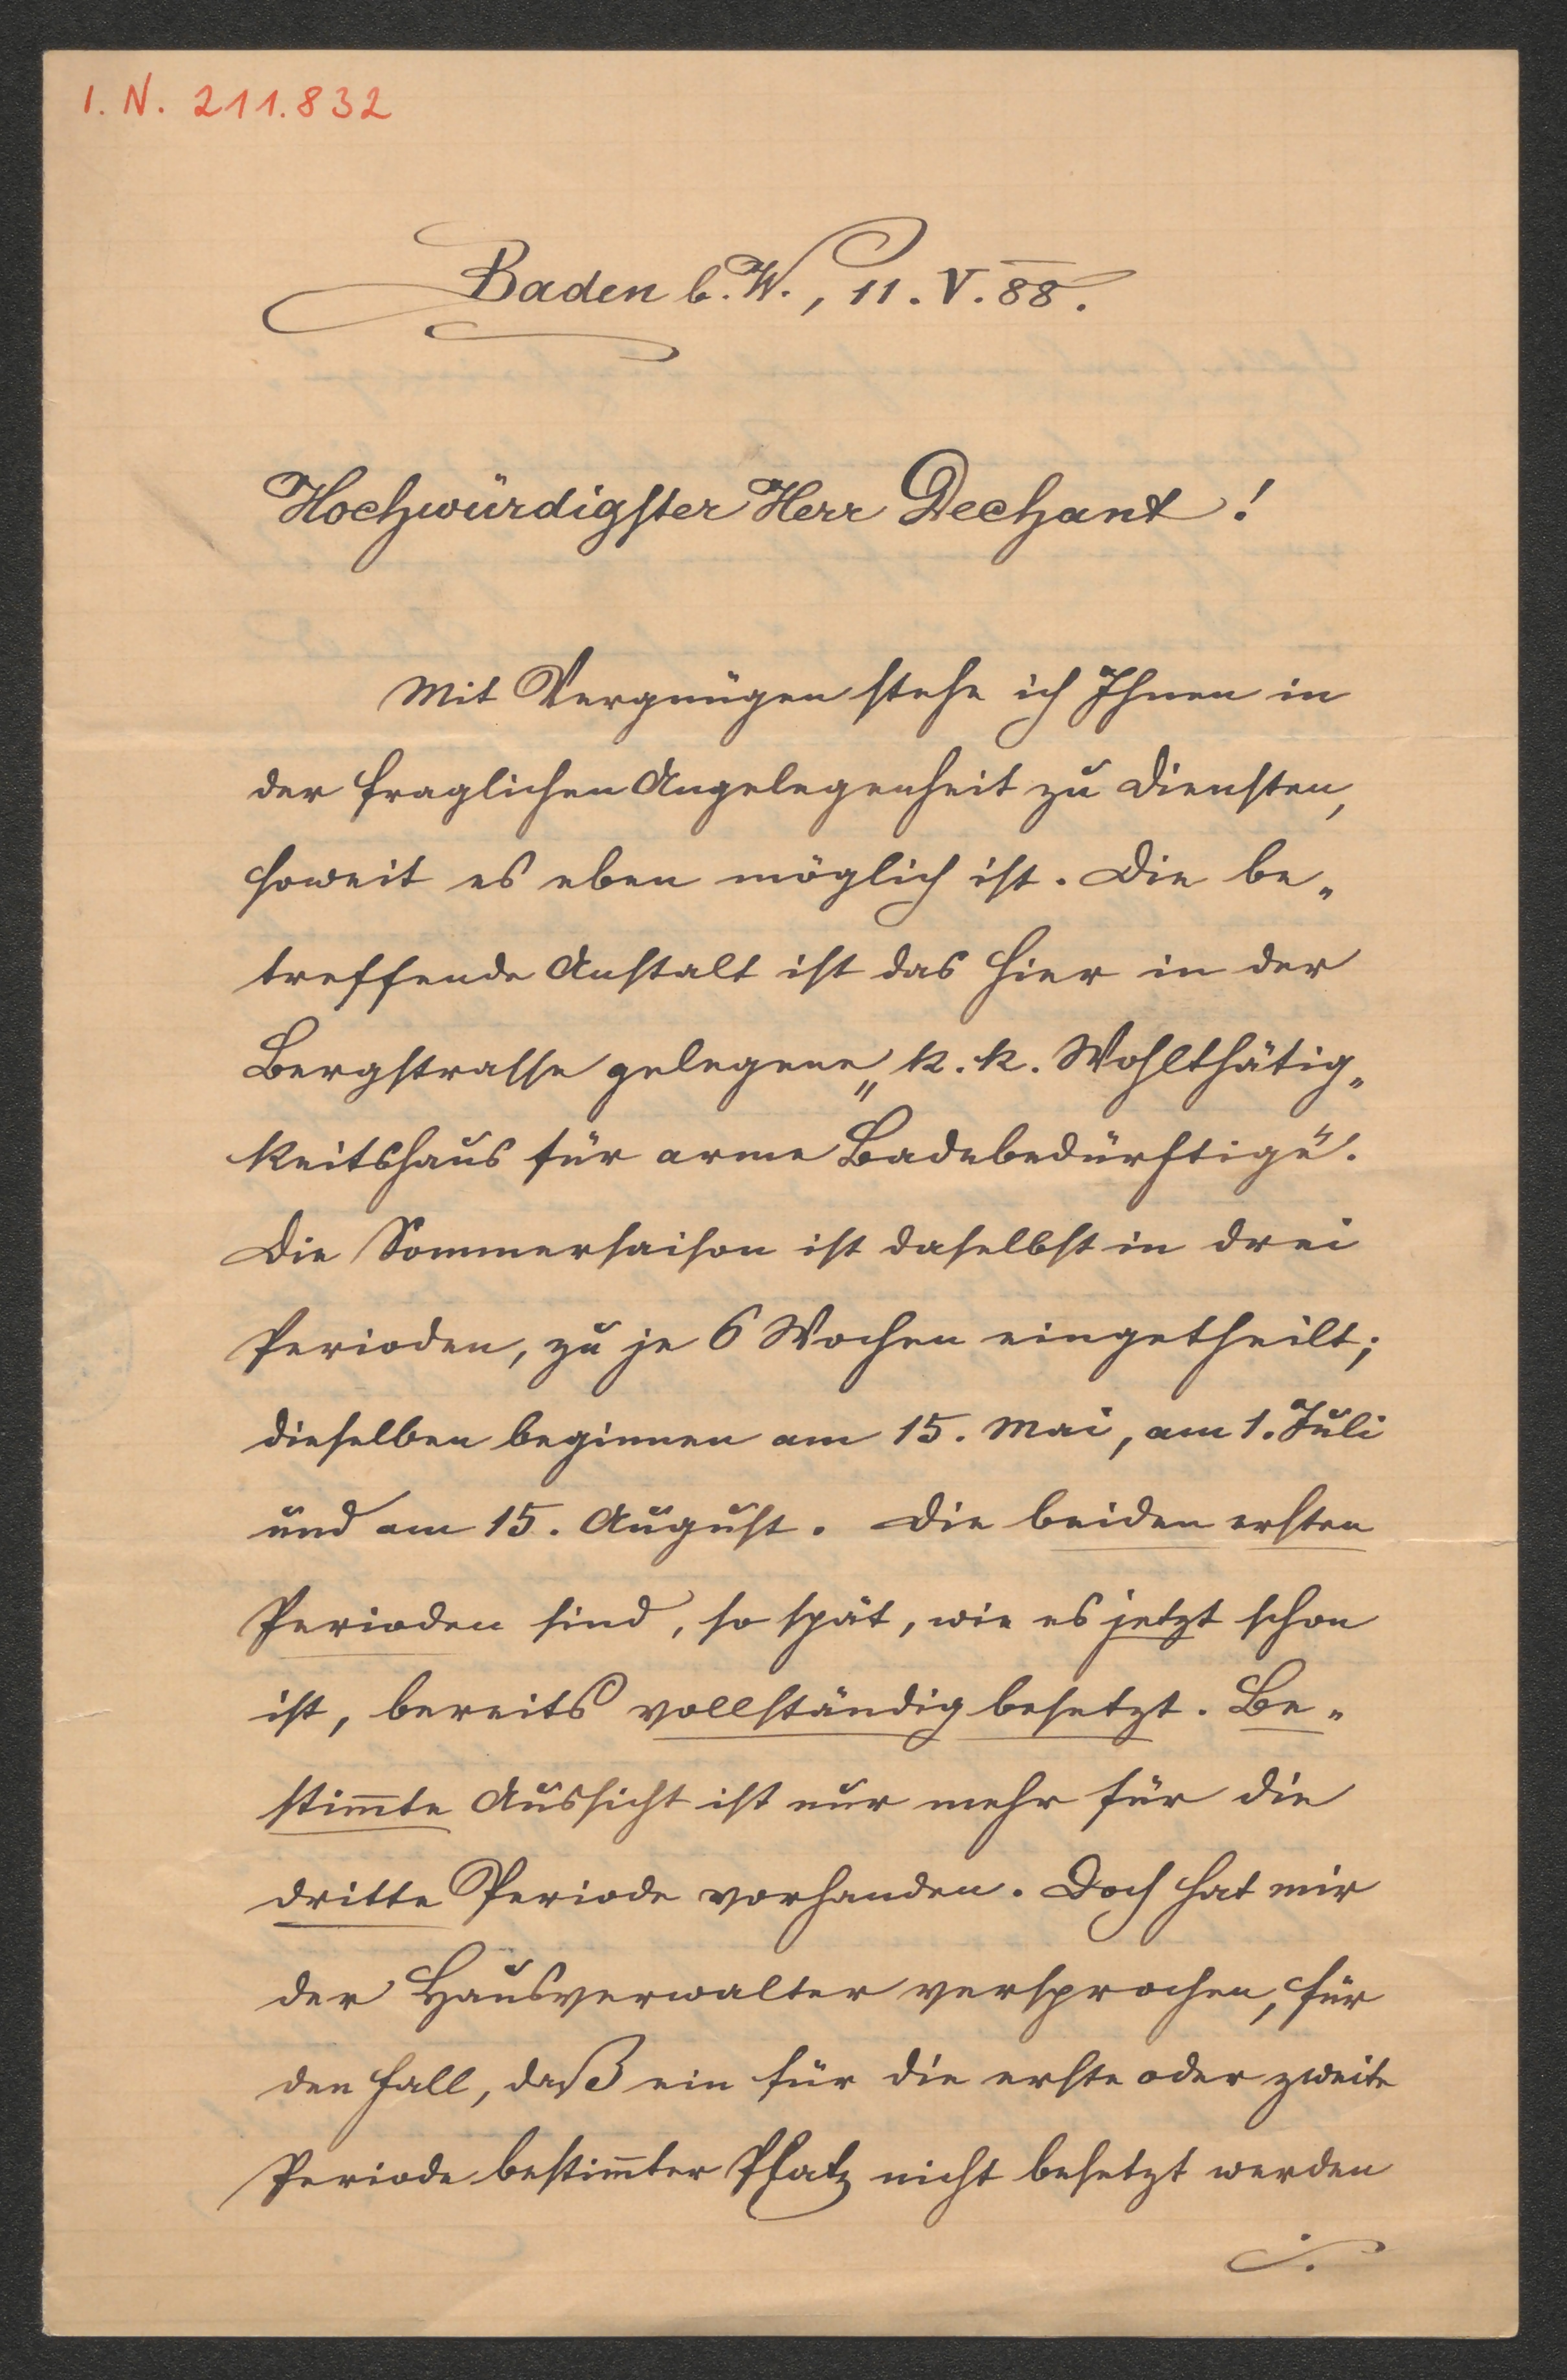 I. N. 211.832
Baden b. W., 11. V. 88.
Hochwürdigster Herr Dechant!
Mit Vergnügen stehe ich Ihnen in
der fraglichen Angelegenheit zu Diensten,
soweit es eben möglich ist. Die be„
treffende Anstalt ist das hier in der
Bergstrasse gelegene „k. k. Wohlthätig„
keitshaus für arme Badebedürftige“.
Die Sommersaison ist daselbst in drei
Perioden, zu je 6 Wochen eingetheilt;
dieselben beginnen am 15. Mai, am 1. Juli
und am 15. August. Die beiden ersten
Perioden sind, so spät, wie es jetzt schon
ist, bereits vollständig besetzt. Be„
stim̅te Aussicht ist nur mehr für die
dritte Periode vorhanden. Doch hat mir
der Hausverwalter versprochen, für
den Fall, daß ein für die erste oder zweite
Periode bestim̅ter Platz nicht besetzt werden
./.